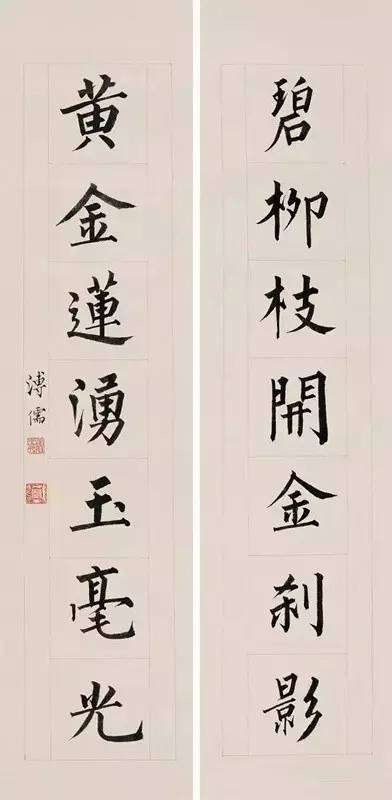 碧柳枝開金刹影
黃金蓮湧玉毫光
溥儒